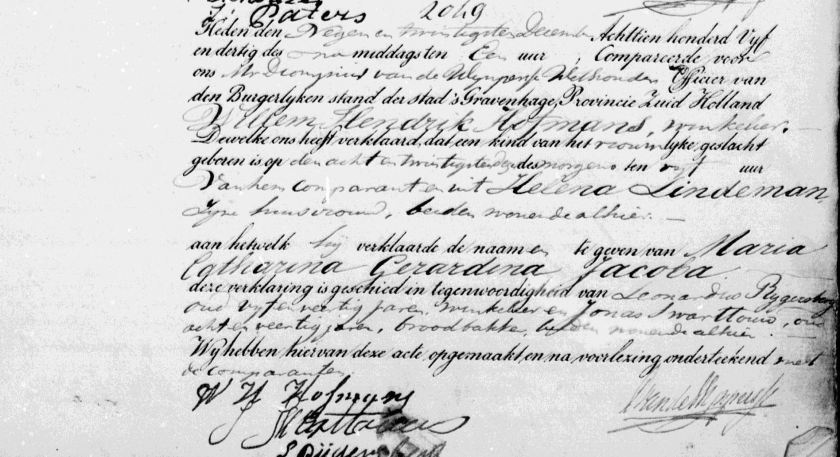 Peters 2049
Heden den Negen en twintigsten Decemb. Achttien honderd Vyf
en dertig des na middags ten Een uur ; Compareerde voor
ons Mr Dionysius van de Wynpersse Wethouder Officier van
den Burgerlyken stand der stad 's Gravenhage, Provincie Zuid Holland
Willem Hendrik Hofmans, winkelier. —
Dewelke ons heeft verklaard, dat een kind van het vrouwelyke, geslacht
geboren is op den acht en twintigsten dezer des morgens ten vyf uur
Van hem Comparant en uit Helena Lindeman
zyne huisvrouw, beiden wonende alhier. —
aan hetwelk hy verklaarde de naamen te geven van Maria
Catharina Gerardina Jacoba.
deze verklaring is geschied in tegenwoordigheid van Leonardus
oud vyf en veertig jaren, winkelier en Jonas Swarttouw, oud
acht en veertig jaren, broodbakker, beiden wonende alhier. —
Wy hebben hiervan deze acte, opgemaakt, en na, voorlezing, onderteekend met
de comparanten.
W H Hofmans